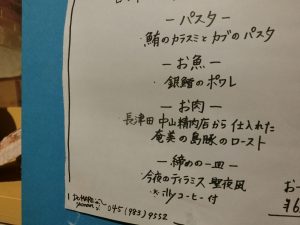 ーパスター
・鮪のカラスミとカブのパスタ
ーお魚ー
・銀鱈のポワレ
ーお肉ー
・長津田 中山精肉店から仕入れた
奄美の島豚のロースト
ー締めの一皿ー
・今夜のティラミス 聖夜風
＊illyコーヒー付
045(983)9552
お一
¥6